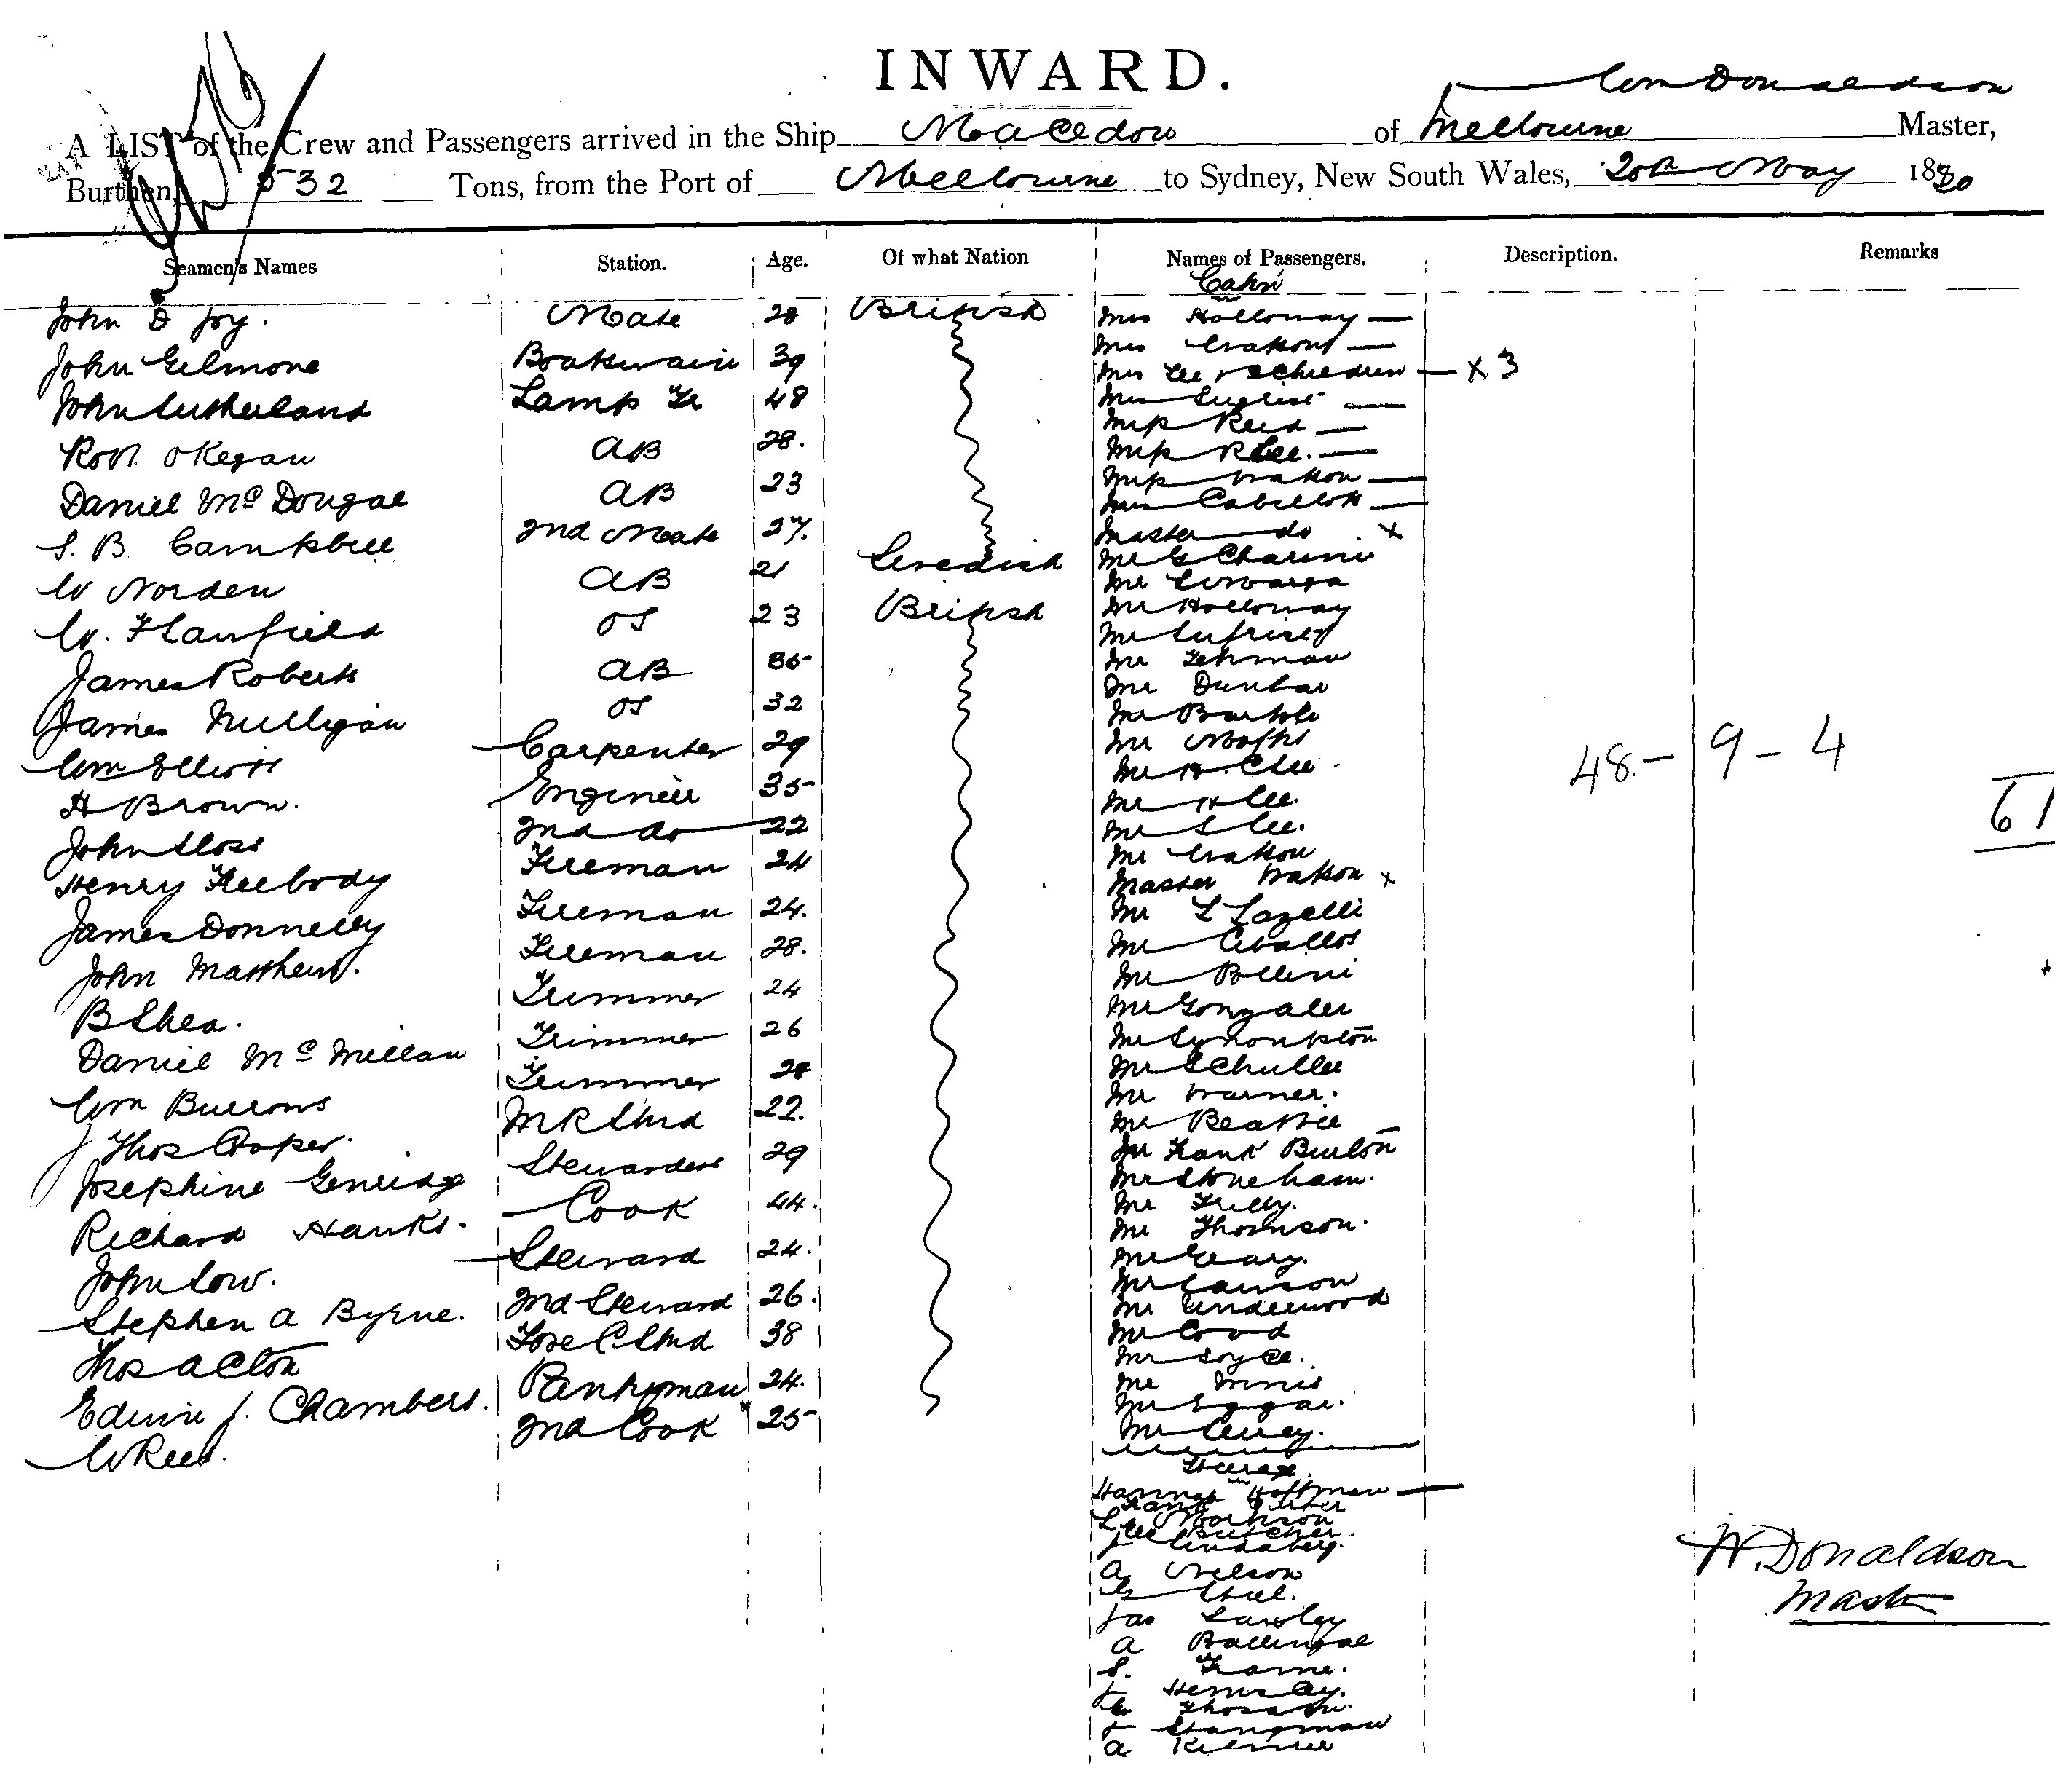 INWARD.
Wm Donaldson
A LIST of the Crew and Passengers arrived in the Ship Macedon of Melbourne Master,
Burthen, 532 Tons, from the Port of Melbourne to Sydney, New South Wales, 20th May 1880
Seamen's Names Station. Age. Of what Nation Names of Passengers. Description. Remarks
John D Joy. Mate 28 British
John Gilmore Boatswain 39
John Sutherland Lamp Tr 48
Robt. OKegan AB 28.
Daniel McDougal AB 23
S. B. Campbell 2nd Mate 27.
W Norden AB 21 Swedish
W. Hanfield OS 23 British
James Roberts AB 35
James Mulligan OS 32
Wm Elliott Carpenter 29
H Brown. Engineer 35
John Sloss 2nd do 22
Henry Freebody Fireman 24
James Donnelly Fireman 24.
John Matthews. Fireman 28.
B Shea. Trimmer 24
Daniel McMillan Trimmer 26
Wm Burrows Trimmer 28
Thos Cooper. M R Stwd 22.
Josephine Stewardess 29
Richard Hanks. Cook 44.
John Low. Steward 24.
Stephen A Byrne. 2nd Steward 26.
Thos Acton Fore C Stwd 38
Edwin J. Chambers. Pantryman 24.
W Rees. 2nd Cook 25
Cabin
Mrs Holloway —
Mrs Watson —
Mrs Lee & 3 Children — x 3
Mrs —
Miss Reid —
Miss R Lee. —
Miss Watson —
Mrs —
Master do x
Mr G
Mr
Mr Holloway
Mr
Mr Lehman
Mr Dunbar
Mr
Mr
Mr
Mr H Lee.
Mr S Lee.
Mr Watson
Master Watson x
Mr L Lazelli
Mr Ceballos
Mr Bellini
Mr Gonzales
Mr
Mr Schuller
Mr Warner.
Mr Beattie
Mr Frank Burton
Mr Stoneham.
Mr
Mr Thomson.
Mr Geary.
Mr Lawson
Mr Underwood
Mr Good
Mr Joyce.
Mr Innis
Mr Eggar.
Mr
Steerage
Hannah Hoffman —
Frank
L Morrison
Butcher.
J
A Nelson
G
Jas Lawley
A Ballingal
S.
J Hemsley.
J
A
48 - 9 - 4
61
W. Donaldson
Master